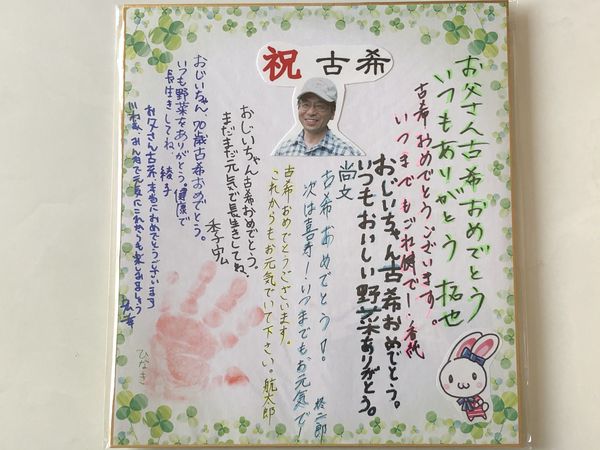 祝 古希
お父さん古希おめでとう
いつもありがとう 拓也
古希おめでとうございます。
いつまでもご健勝で!香織
おじいちゃん古希おめでとう。
いつもおいしい野菜ありがとう。
尚文
古希おめでとう!
次は喜寿!いつまでもお元気で!
古希おめでとうございます。
これからもお元気でいて下さい。航太郎
おじいちゃん古希おめでとう。
まだまだ元気で長生きしてね。
おじいちゃん、70歳古希おめでとう。
いつも野菜をありがとう。健康で
長生きしてね 綾子
お父さん古希、本当におめでとうございます
ひなき